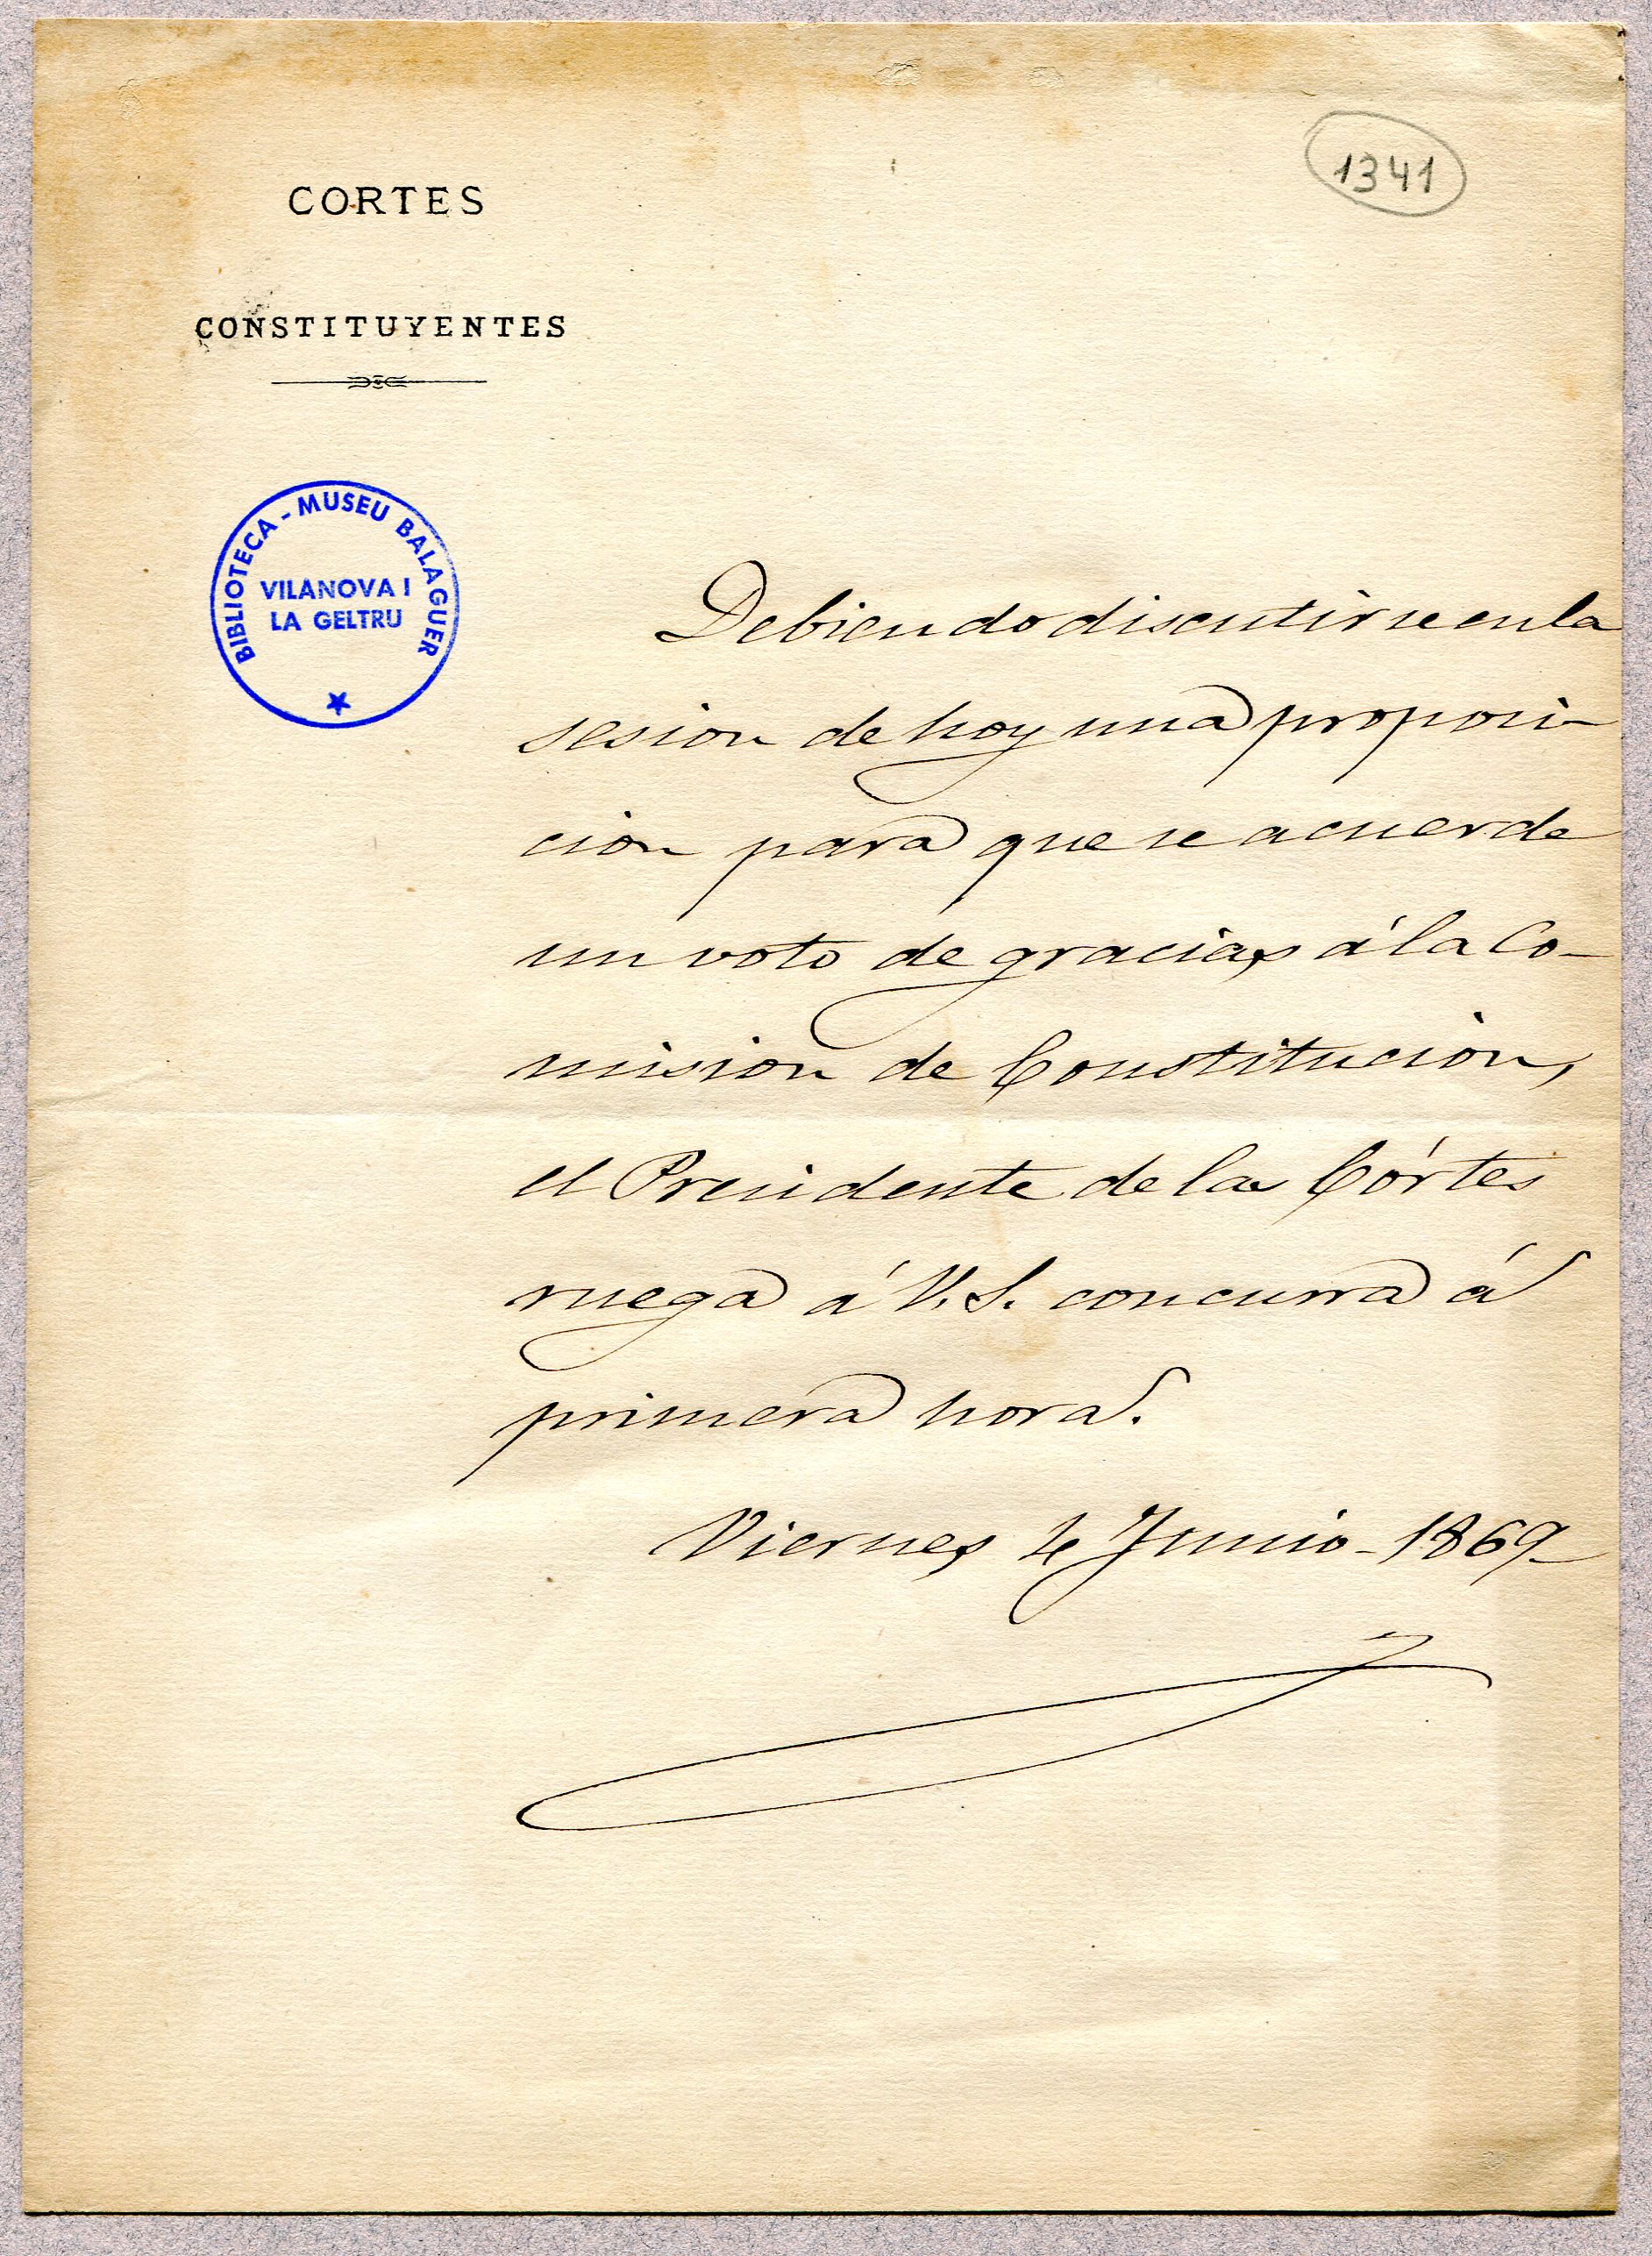 1341
CORTES
CONSTITUYENTES
BIBLIOTECA - MUSEU BALAGUER
VILANOVA I
LA GELTRU
Debiendo discutirse en la
sesion de hoy una proposi-
cion para que se acuerde
un voto de gracias á la Co-
mision de Constitucion,
el Presidente de las Córtes
ruega á V. S. concurra á
primera hora.
Viernes 4 Junio - 1869 -